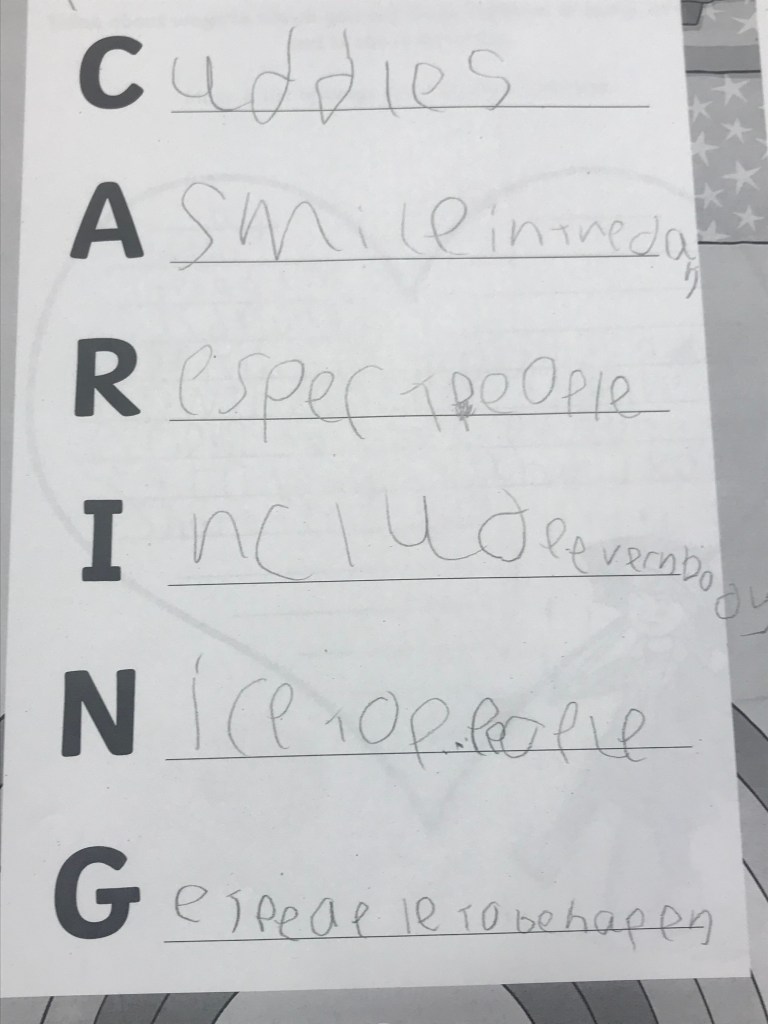 Cuddles
A smile in the day
Respect people
Include evernbody
Nice to people
Get peaple to be happen